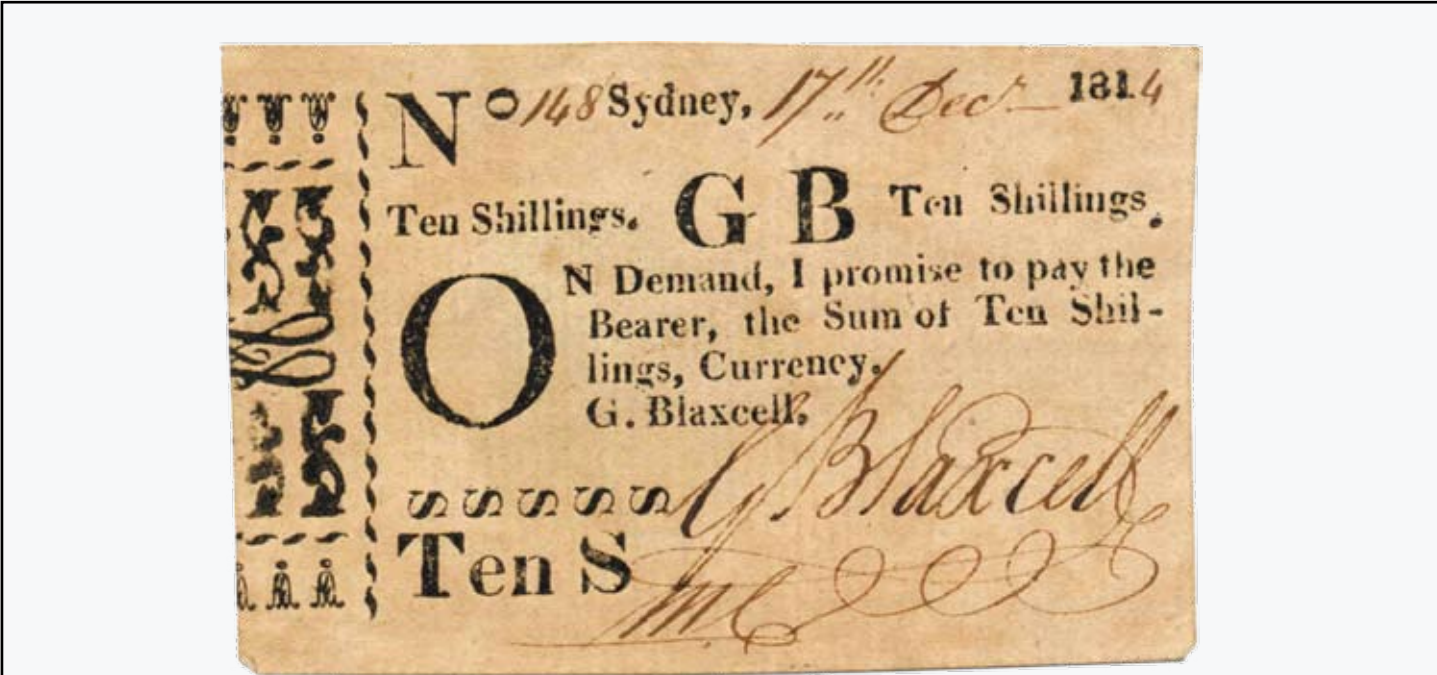 No 148 Sydney, 17th Decr 1814
Ten Shillings. G B Ten Shillings.
ON Demand, I promise to pay the
Bearer, the Sum of Ten Shil-
lings, Currency.
G. Blaxcell.
SSSSS G Blaxcell
Ten S